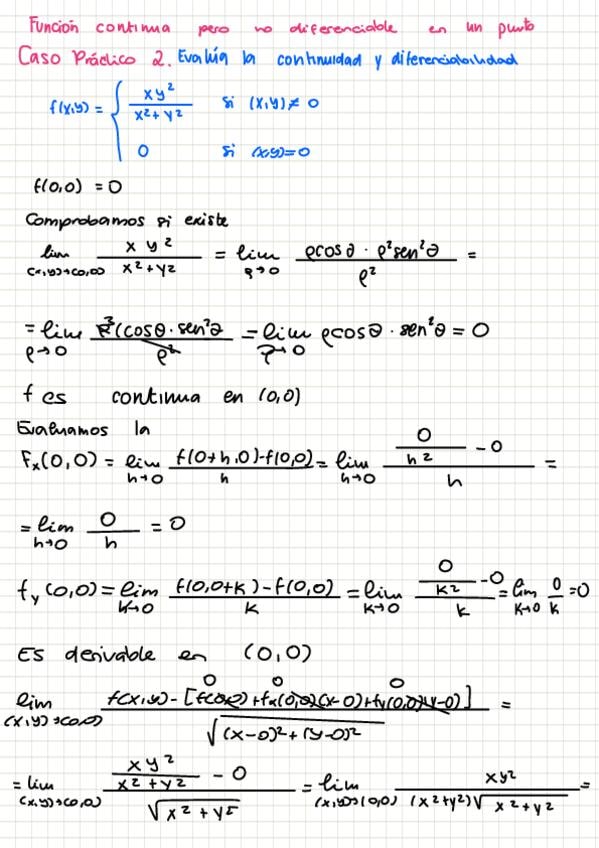 Función continua pero no diferenciable en un punto
Caso Práctico 2. Evalúa la continuidad y diferenciabilidad
f(x,y) = { xy² / x²+y² si (x,y) ≠ 0
0 si (x,y)=0
f(0,0) = 0
Comprobamos si existe
lim (x,y)→(0,0) x y² / x²+y² = lim ρ→0 ρcosθ · ρ²sen²θ / ρ² =
= lim ρ→0 ρ³(cosθ · sen²θ / ρ² = lim ρ→0 ρcosθ · sen²θ = 0
f es continua en (0,0)
Evaluamos la
Fx(0,0) = lim h→0 f(0+h,0)-f(0,0) / h = lim h→0 0/h² - 0 / h =
= lim h→0 0/h = 0
fy(0,0) = lim k→0 f(0,0+k)-f(0,0) / k = lim k→0 0/k² - 0 / k = lim k→0 0/k = 0
Es derivable en (0,0)
0 0 0
lim (x,y)→(0,0) f(x,y) - [f(0,0) + fx(0,0)(x-0) + fy(0,0)(y-0)] / √(x-0)²+(y-0)² =
= lim (x,y)→(0,0) xy² / x²+y² - 0 / √x²+y² = lim (x,y)→(0,0) xy² / (x²+y²)√x²+y² =